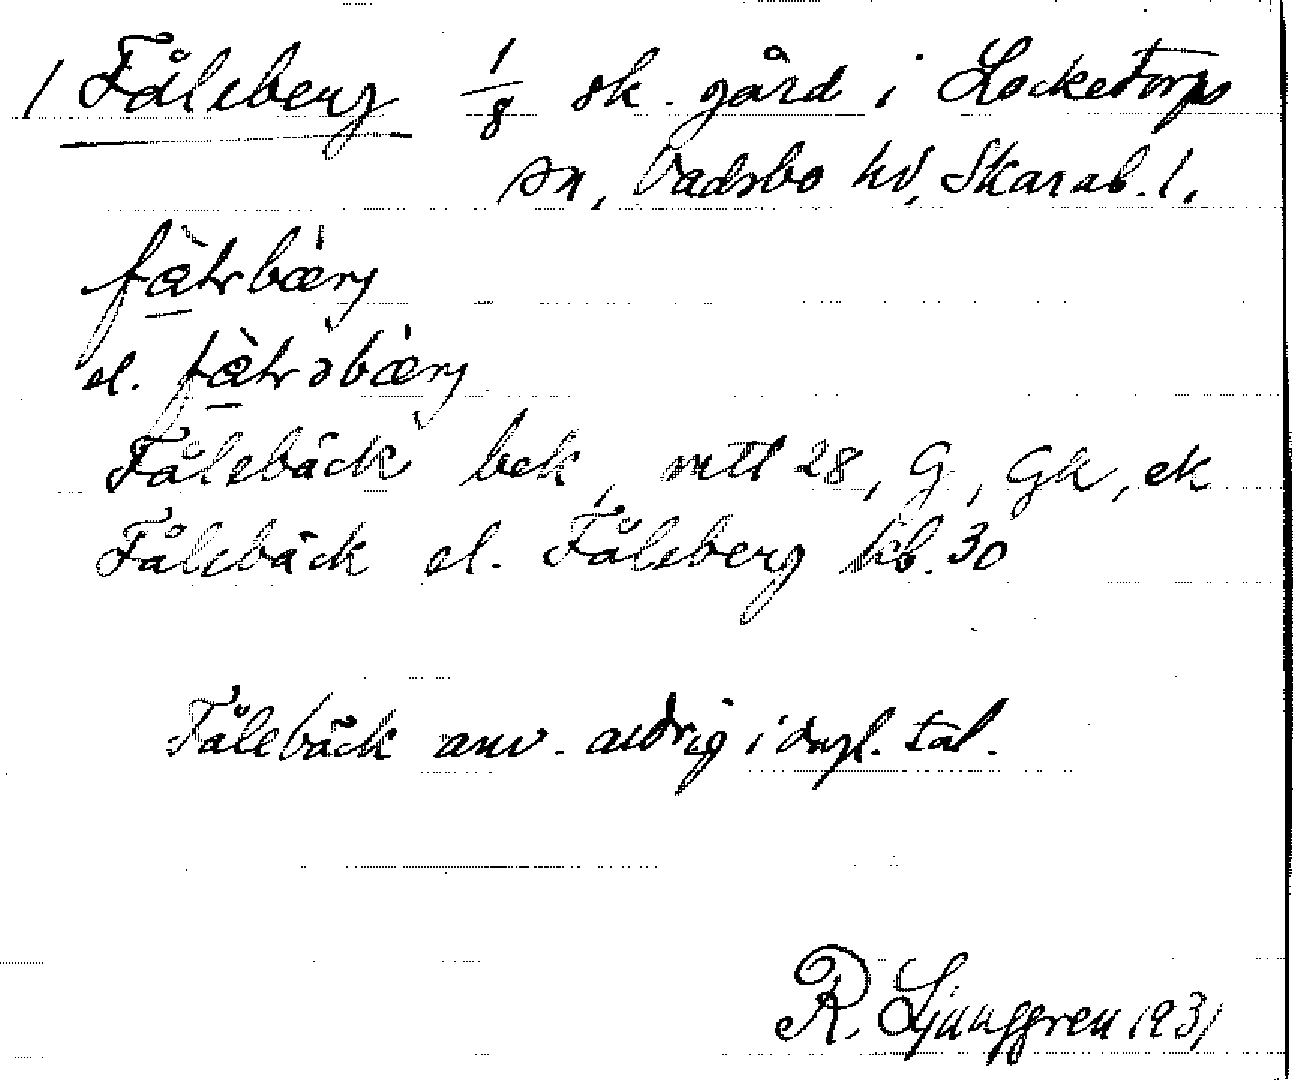 1 Fåleberg 1/8 sk. gård i Locketorps
sn, Vadsbo hd, Skarab. l.
el.
Fålebäck bek, mtl 28, G, Gk, ek
Fålebäck el. Fåleberg kb. 30
Fålebäck anv. aldrig i dagl. tal.
R. Ljunggren 1931